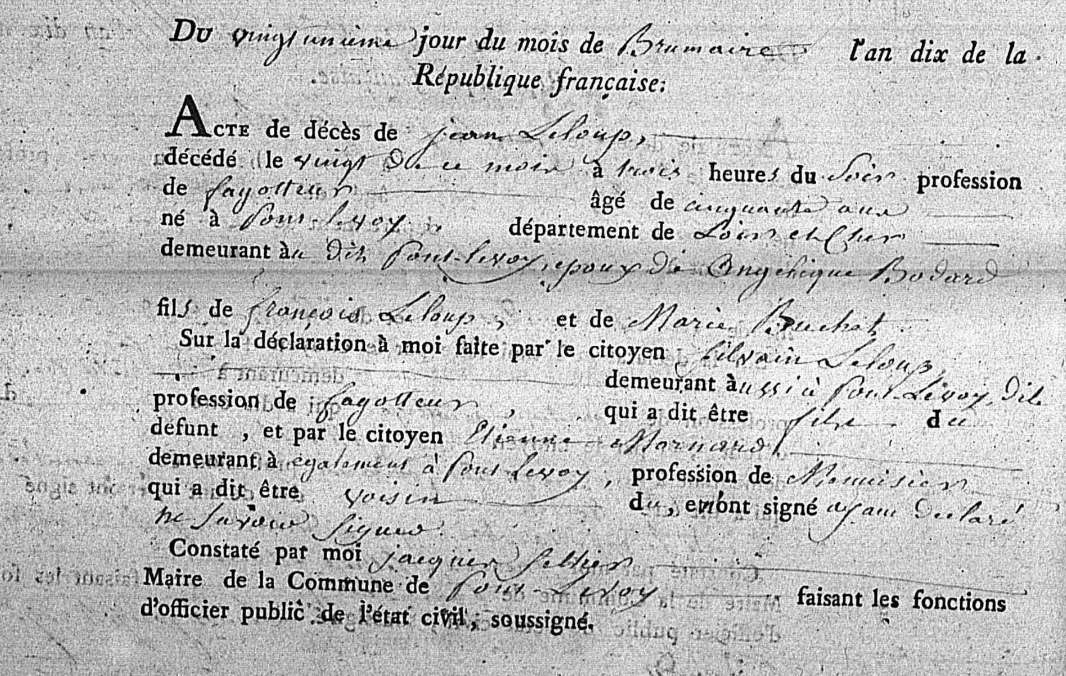 Du vingt unième jour du mois de Brumaire l'an dix de la
République française;
ACTE de décès de jean Leloup,
décédé le vingt du ce mois à trois heures du Soir profession
de fagotteur âgé de cinquante ans
né à Pont-levoy. département de Loir et Cher
demeurant au dit Pont-levoy, epoux de Angelique Bodard
fils de françois Leloup, et de Marie Buchet
Sur la déclaration à moi faite par le citoyen Silvain Leloup,
demeurant aussi à Pont Levoy, dite
profession de fagotteur, qui a dit être fils du
défunt, et par le citoyen Etienne Marnard
demeurant à également à Pont Levoy, profession de Menuisier
qui a dit être voisin du, et n'ont signé ayant declaré
ne Savoir Signer.
Constaté par moi jacques Sellier
Maire de la Commune de Pont-Levoy faisant les fonctions
d'officier public de l'état civil, soussigné.